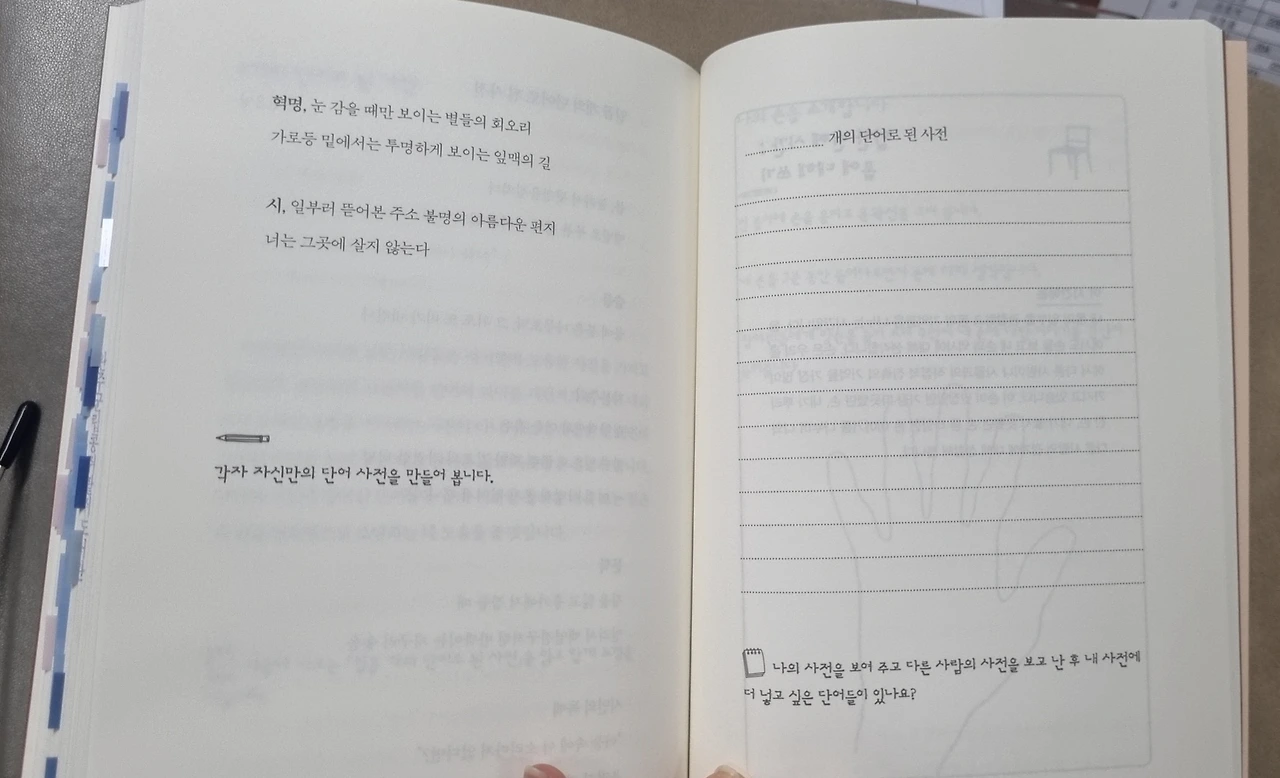 혁명, 눈 감을 때만 보이는 별들의 회오리
가로등 밑에서는 투명하게 보이는 잎맥의 길
시, 일부러 뜯어본 주소 불명의 아름다운 편지
너는 그곳에 살지 않는다
각자 자신만의 단어 사전을 만들어 봅니다.
개의 단어로 된 사전
나의 사전을 보여 주고 다른 사람의 사전을 보고 난 후 내 사전에
더 넣고 싶은 단어들이 있나요?